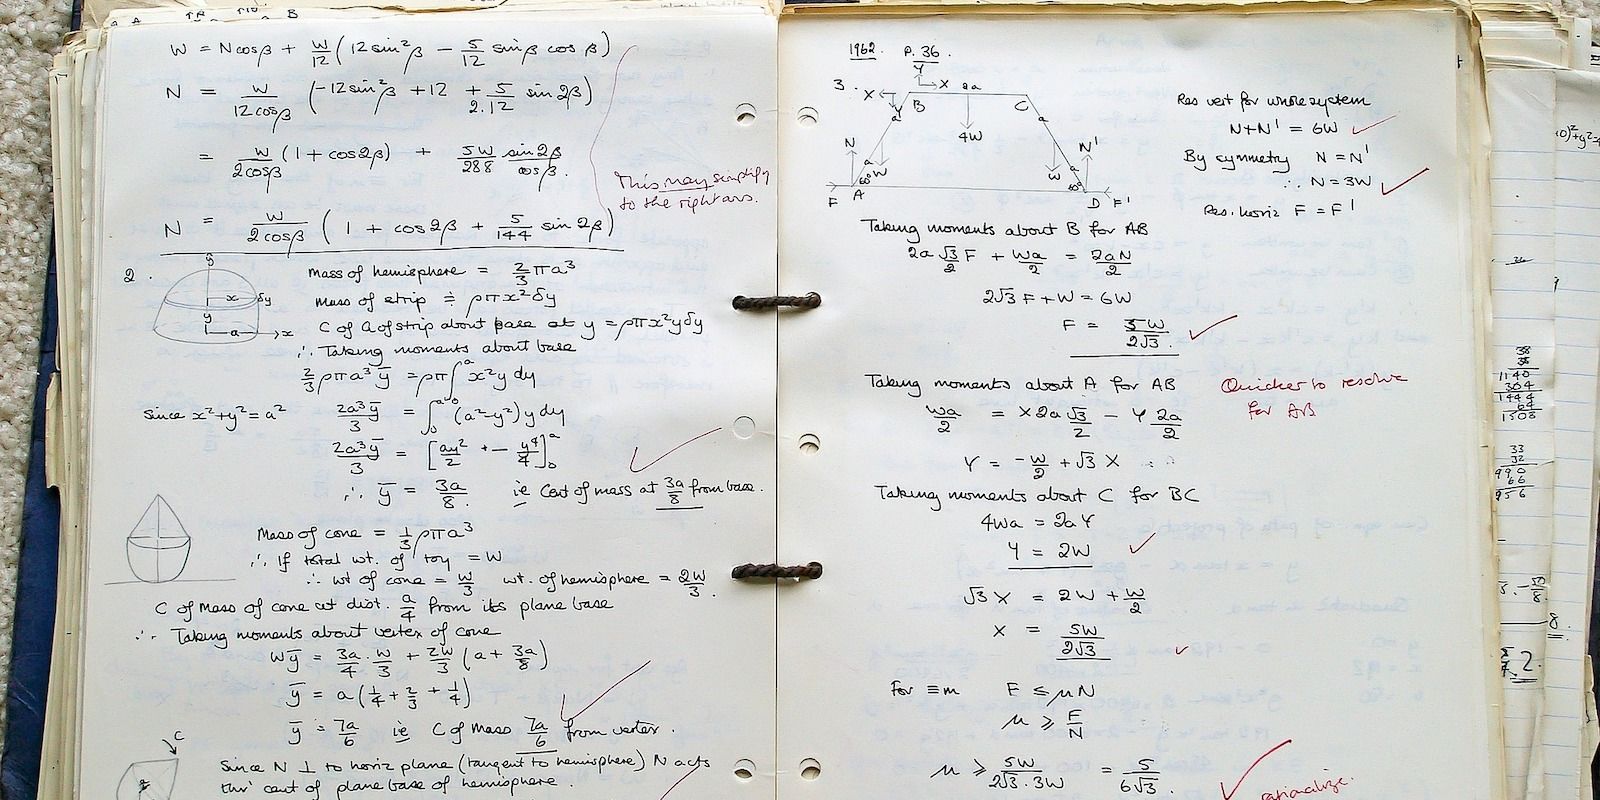 W = Ncosβ + W/12 (12sin²β − 5/12 sinβ cosβ)
N = W/12cosβ (−12sin²β + 12 + 5/2.12 sin2β)
= W/2cosβ (1 + cos2β) + 5W/288 sin2β/cosβ.
This may simplify
to the right ans.
N = W/2cosβ (1 + cos2β + 5/144 sin2β)
2.
x δy
y
a x
Mass of hemisphere = 2/3 πa³
Mass of strip ≑ ρπx²δy
C of G of strip about base at y = ρπx²yδy
∴ Taking moments about base
2/3 ρπa³ȳ = ρπ∫ᵃ₀ x²y dy
Since x²+y²=a² 2a³ȳ/3 = ∫ᵃ₀ (a²−y²)y dy
2a³ȳ/3 = [ay²/2 − y⁴/4]ᵃ₀
∴ ȳ = 3a/8. ie Cent of mass at 3a/8 from base.
Mass of cone = 1/3 ρπa³
∴ If total wt. of toy = W
∴ wt of cone = W/3 wt. of hemisphere = 2W/3.
C of Mass of cone at dist. a/4 from its plane base
∴ Taking moments about vertex of cone
Wȳ = 3a/4 . W/3 + 2W/3 (a + 3a/8)
ȳ = a(1/4 + 2/3 + 1/4)
ȳ = 7a/6 ie C of Mass 7a/6 from vertex.
C
Since N ⊥ to horiz plane (tangent to hemisphere) N acts
thro' cent of plane base of hemisphere.
1962. P. 36
3.
Y
X X 2a
Y B C
a a
4W
N N'
a W W a
60° 60°
F A D F'
Res vert for whole system
N+N' = 6W
By symmetry N = N'
∴ N = 3W
Res. horiz F = F'
Taking moments about B for AB
2a√3/2 F + Wa/2 = 2aN/2
2√3F + W = 6W
F = 5W/2√3.
Taking moments about A for AB
Quicker to resolve
for AB
Wa/2 = X2a√3/2 − Y 2a/2
Y = −W/2 + √3 X
Taking moments about C for BC
4Wa = 2aY
Y = 2W
√3 X = 2W + W/2
X = 5W/2√3
For ≡m F ≤ μN
μ ≥ F/N
μ ≥ 5W/2√3.3W = 5/6√3.
rationalize.
38
38
1140
304
1444
64
1508
33
32
990
66
956
8.
2.